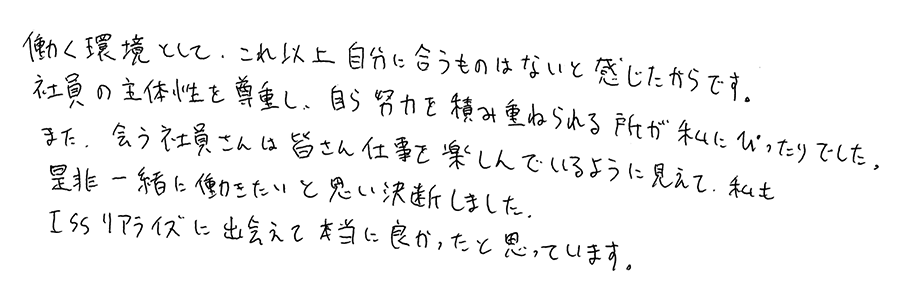 働く環境として、これ以上自分に合うものはないと感じたからです。
社員の主体性を尊重し、自ら努力を積み重ねられる所が私にぴったりでした。
また、会う社員さんは皆さん仕事を楽しんでいるように見えて、私も
是非一緒に働きたいと思い決断しました。
ISSリアライズに出会えて本当に良かったと思っています。